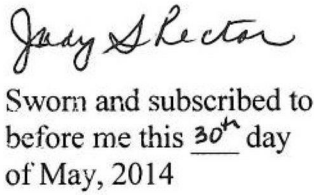 Judy S Rector
Sworn and subscribed to
before me this 30th day
of May, 2014